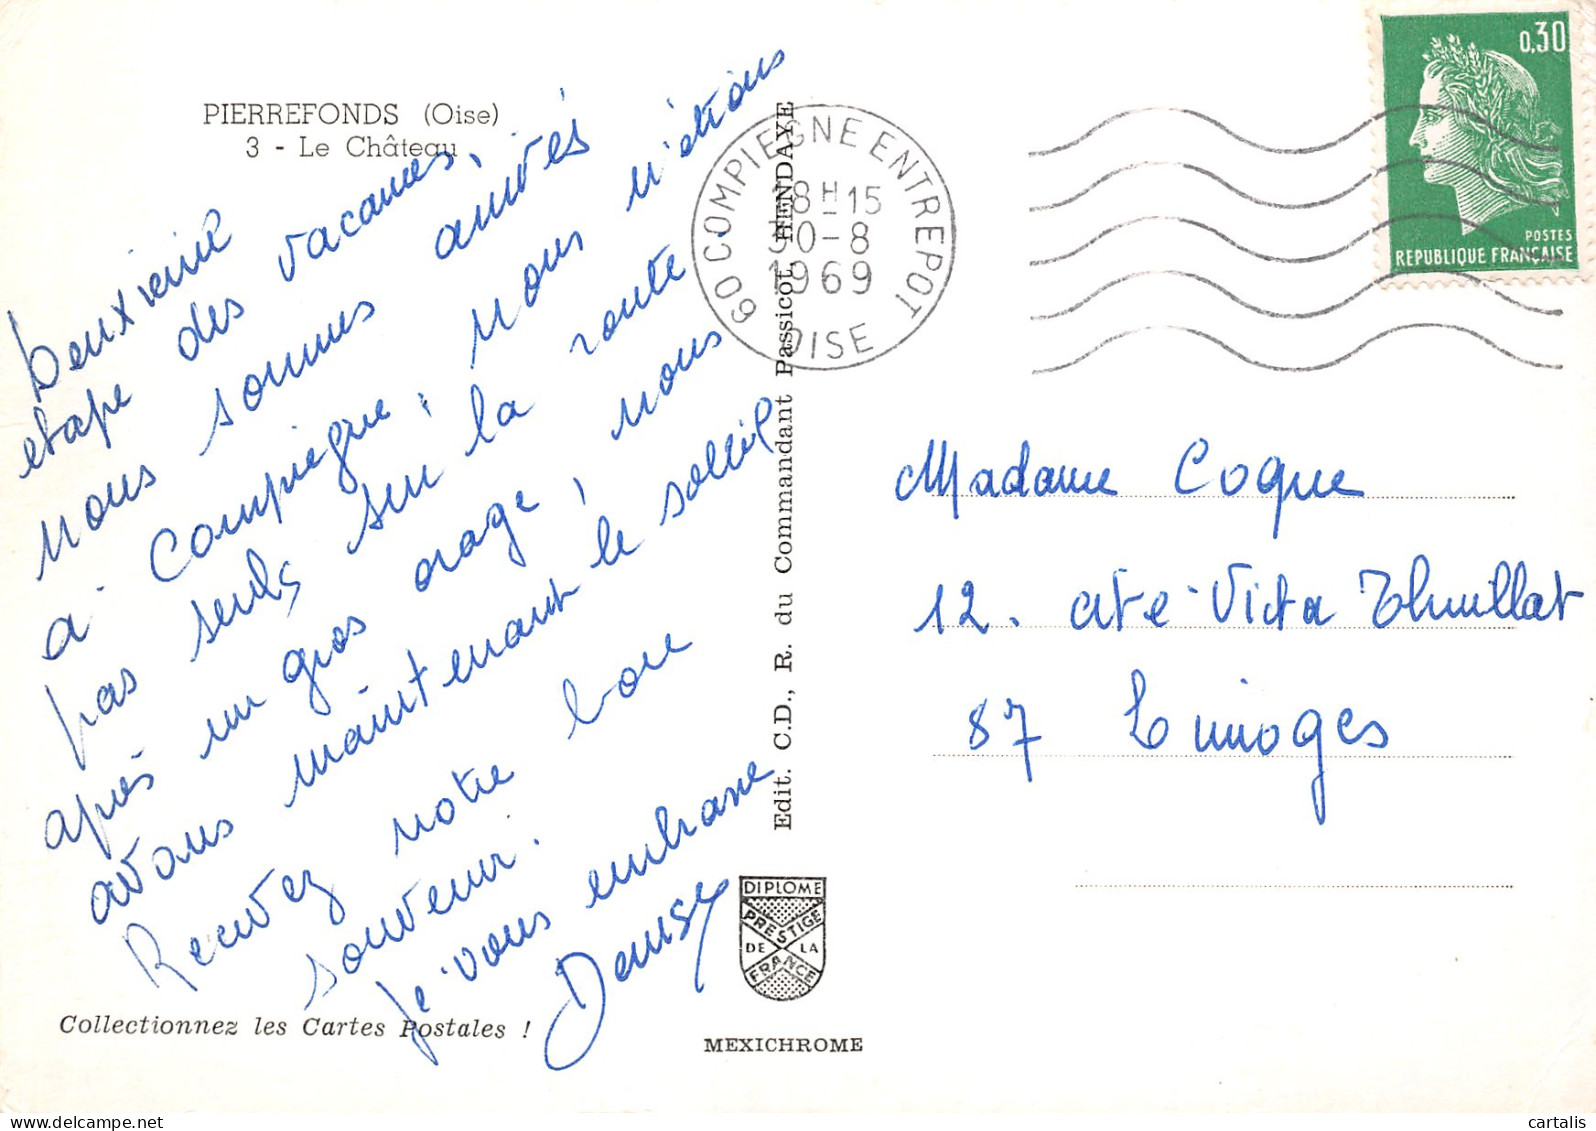 PIERREFONDS (Oise)
3 - Le Château
Deuxième
etape des vacances,
nous sommes arrivés
à Compiègne; nous n'étions
pas seuls sur la route.
après un gros orage, nous
avons maintenant le soleil
Recevez notre bon
souvenir.
Je vous embrasse
Denise
Collectionnez les Cartes Postales !
Edit. C.D., R. du Commandant Passicot, HENDAYE
DIPLOME
PRESTIGE
DE LA
FRANCE
MEXICHROME
60 COMPIEGNE ENTREPOT
18H-15
30-8
1969
OISE
0,30
POSTES
REPUBLIQUE FRANÇAISE
Madame Coque
12. cité Victor Thuillat
87 Limoges
cartalis